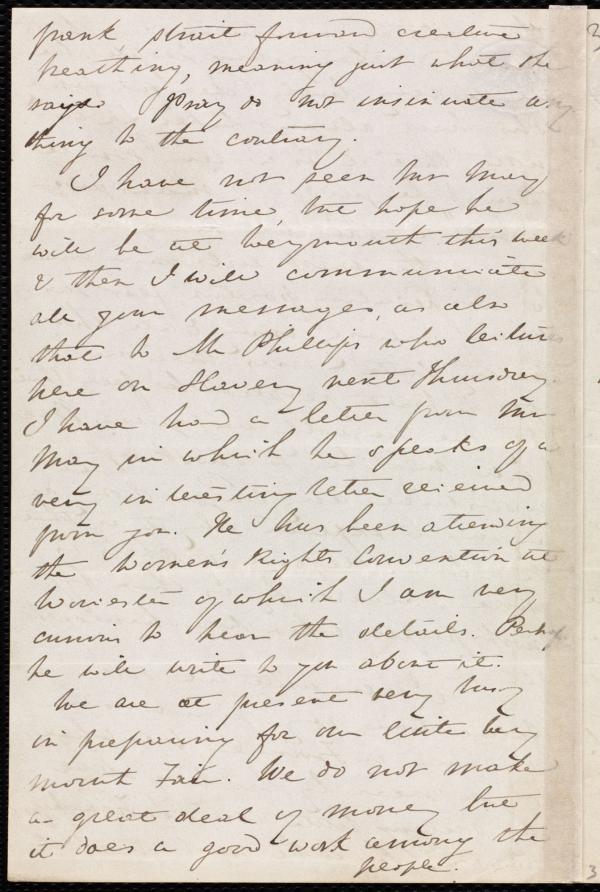 frank strait forward creature
breathing, meaning just what she
says. Pray do not insinuate any
thing to the contrary.
I have not seen Mr May
for some time, but hope he
will be at Weymouth this week
& then I will communicate
all your messages, as also
that to Mr Phillips who lectures
here on Slavery next Thursday.
I have had a letter from Mr
May in which he speaks of a
very interesting letter received
from you. He has been attending
the Women's Rights Convention at
Worcester of which I am very
curious to hear the details. Perhaps
he will write to you about it.
We are at present very busy
in preparing for our little Wey
mouth Fair. We do not make
a great deal of money but
it does a good work among the
people.
3